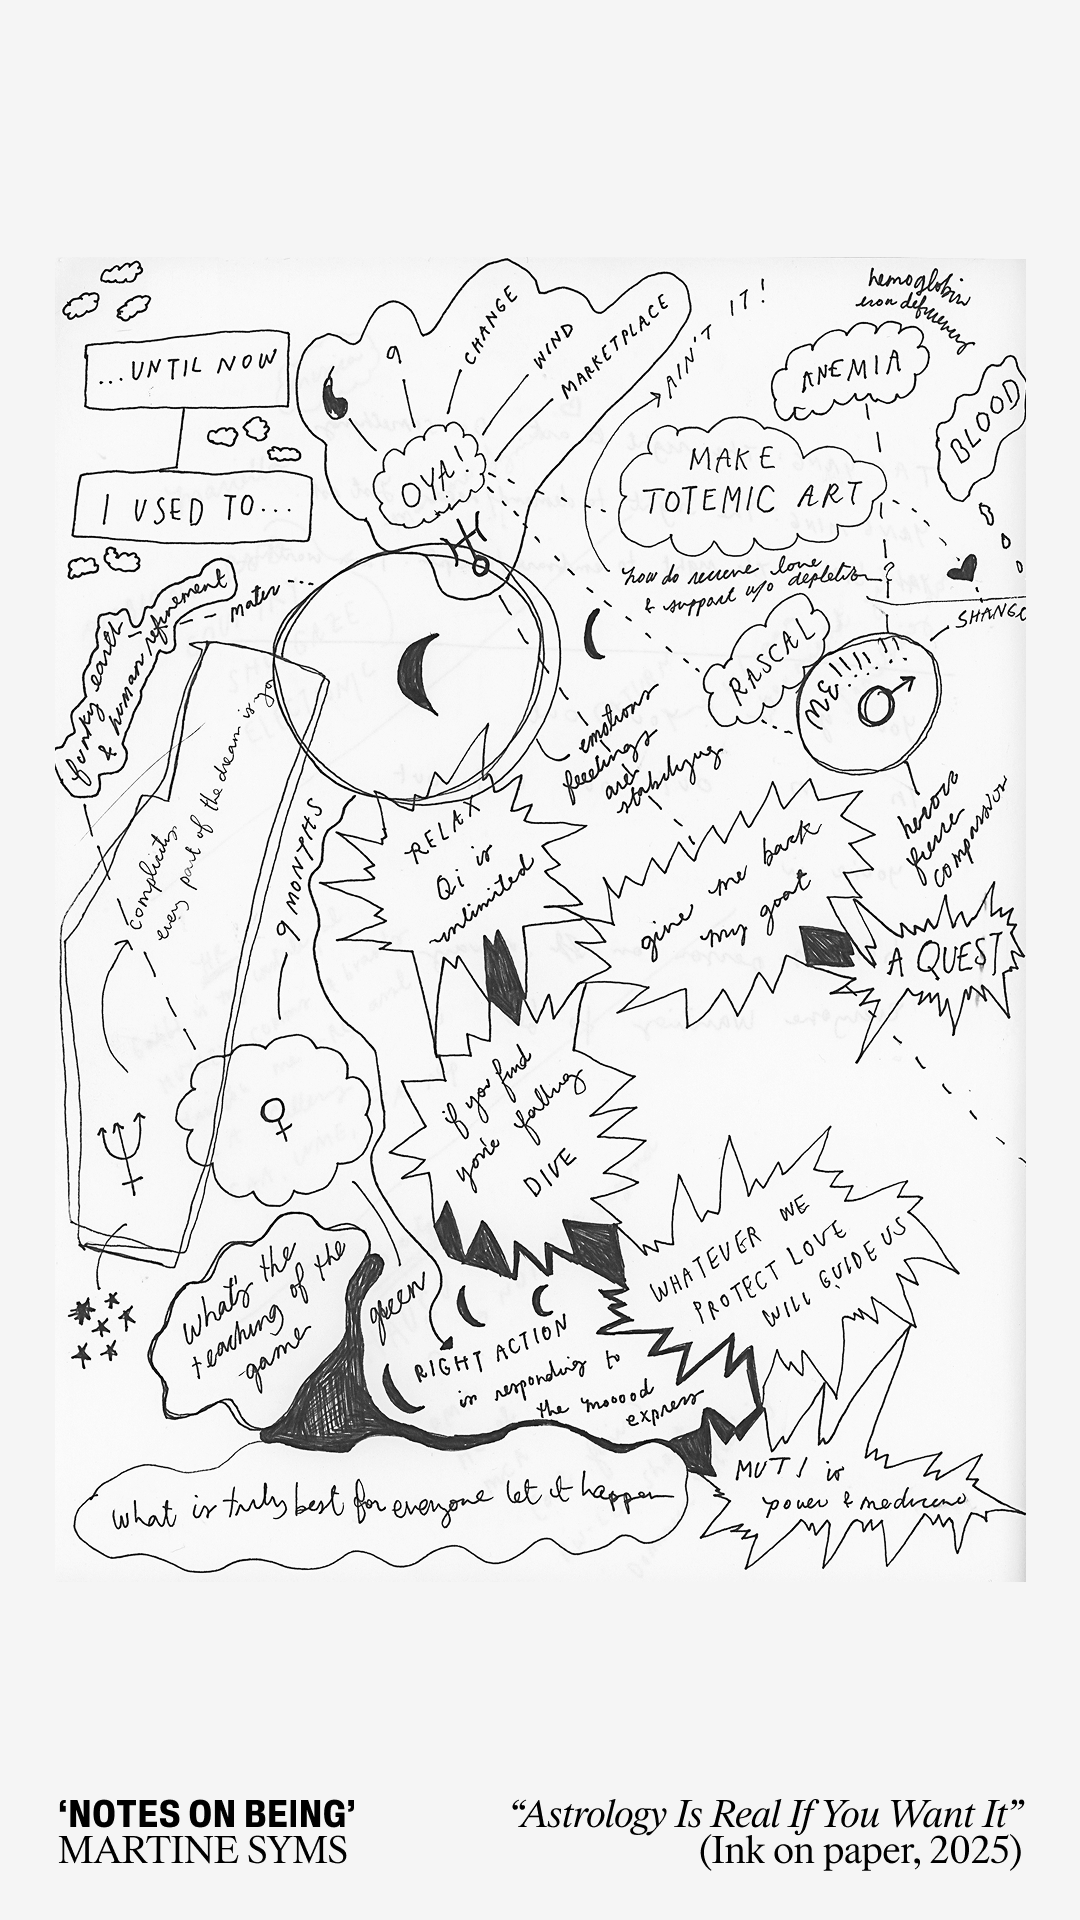 hemoglobin
iron deficiency
...UNTIL NOW
I USED TO...
9
CHANGE
WIND
MARKETPLACE
OYA!
AIN'T IT!
ANEMIA
BLOOD
MAKE
TOTEMIC ART
how do receive love
& support w/o depletion
SHANGO
RASCAL
ME!!!!!!
funky earth
& human refinement
mater
emotions
feelings
are
stabilizing
heroic
fierce
compassion
complicity
every part of the dream is yo
9 MONTHS
RELAX
Qi is
unlimited
give me back
my goat
A QUEST
if you find
you're falling
DIVE
WHATEVER WE
PROTECT LOVE
WILL GUIDE US
What's the
teaching of the
game
green
RIGHT ACTION
is responding to
the mooood
express
MUTI is
power & medicine
what is truly best for everyone let it happen
‘NOTES ON BEING’
MARTINE SYMS
“Astrology Is Real If You Want It”
(Ink on paper, 2025)